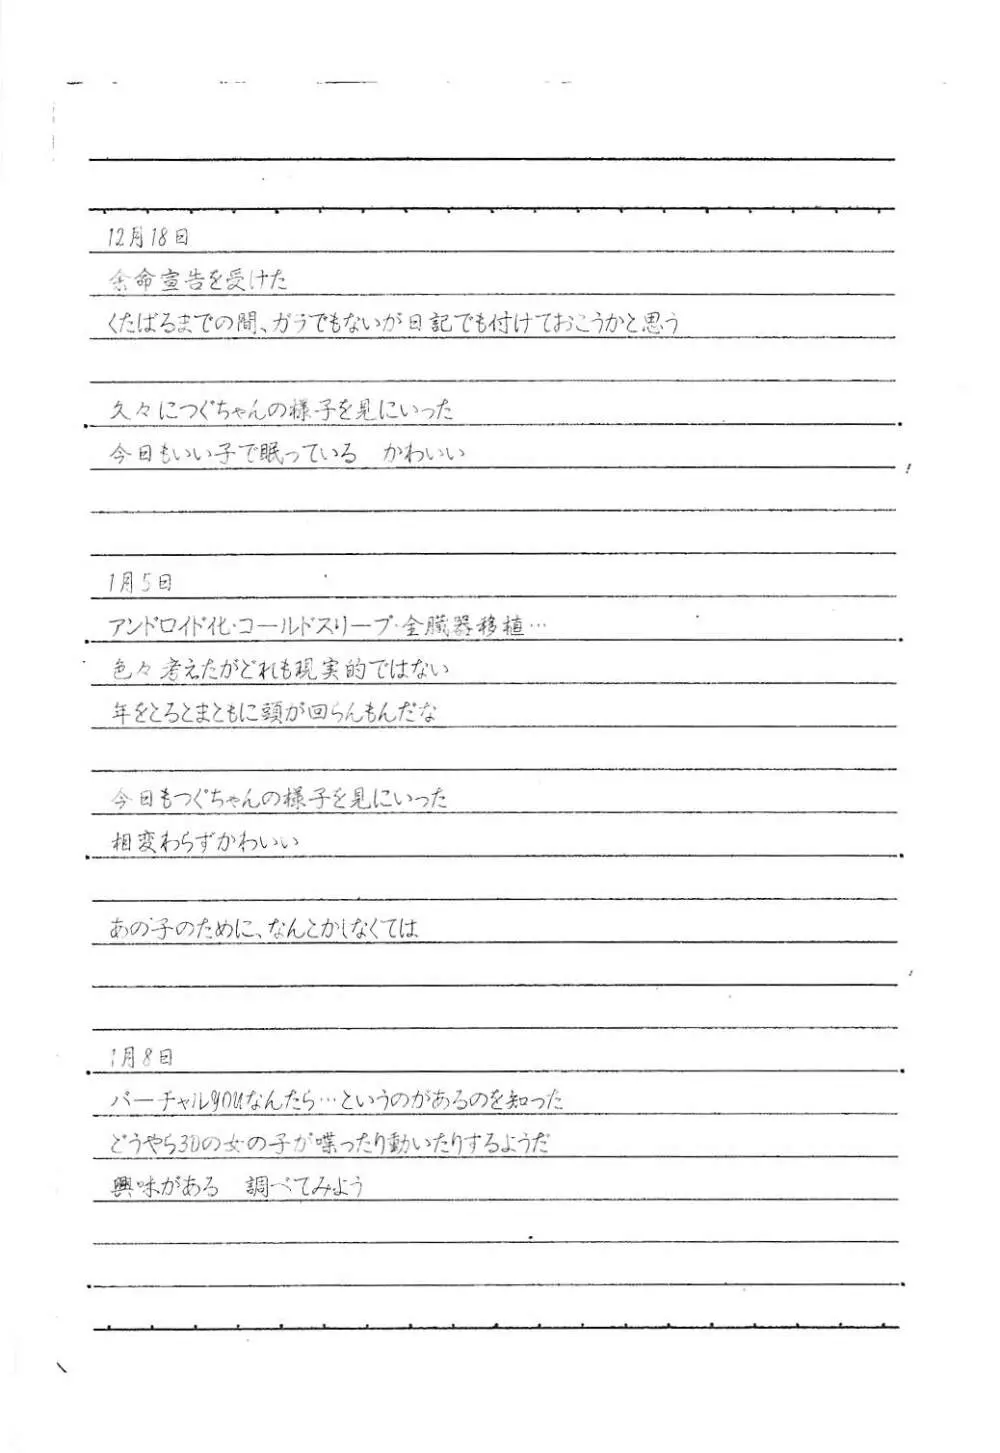 12月18日
余命宣告を受けた
くたばるまでの間、ガラでもないが日記でも付けておこうかと思う
久々につぐちゃんの様子を見にいった
今日もいい子で眠っている　かわいい
1月5日
アンドロイド化・コールドスリープ・全臓器移植…
色々考えたがどれも現実的ではない
年をとるとまともに頭が回らんもんだな
今日もつぐちゃんの様子を見にいった
相変わらずかわいい
あの子のために、なんとかしなくては
1月8日
バーチャルYOUなんたら…というのがあるのを知った
どうやら3Dの女の子が喋ったり動いたりするようだ
興味がある　調べてみよう